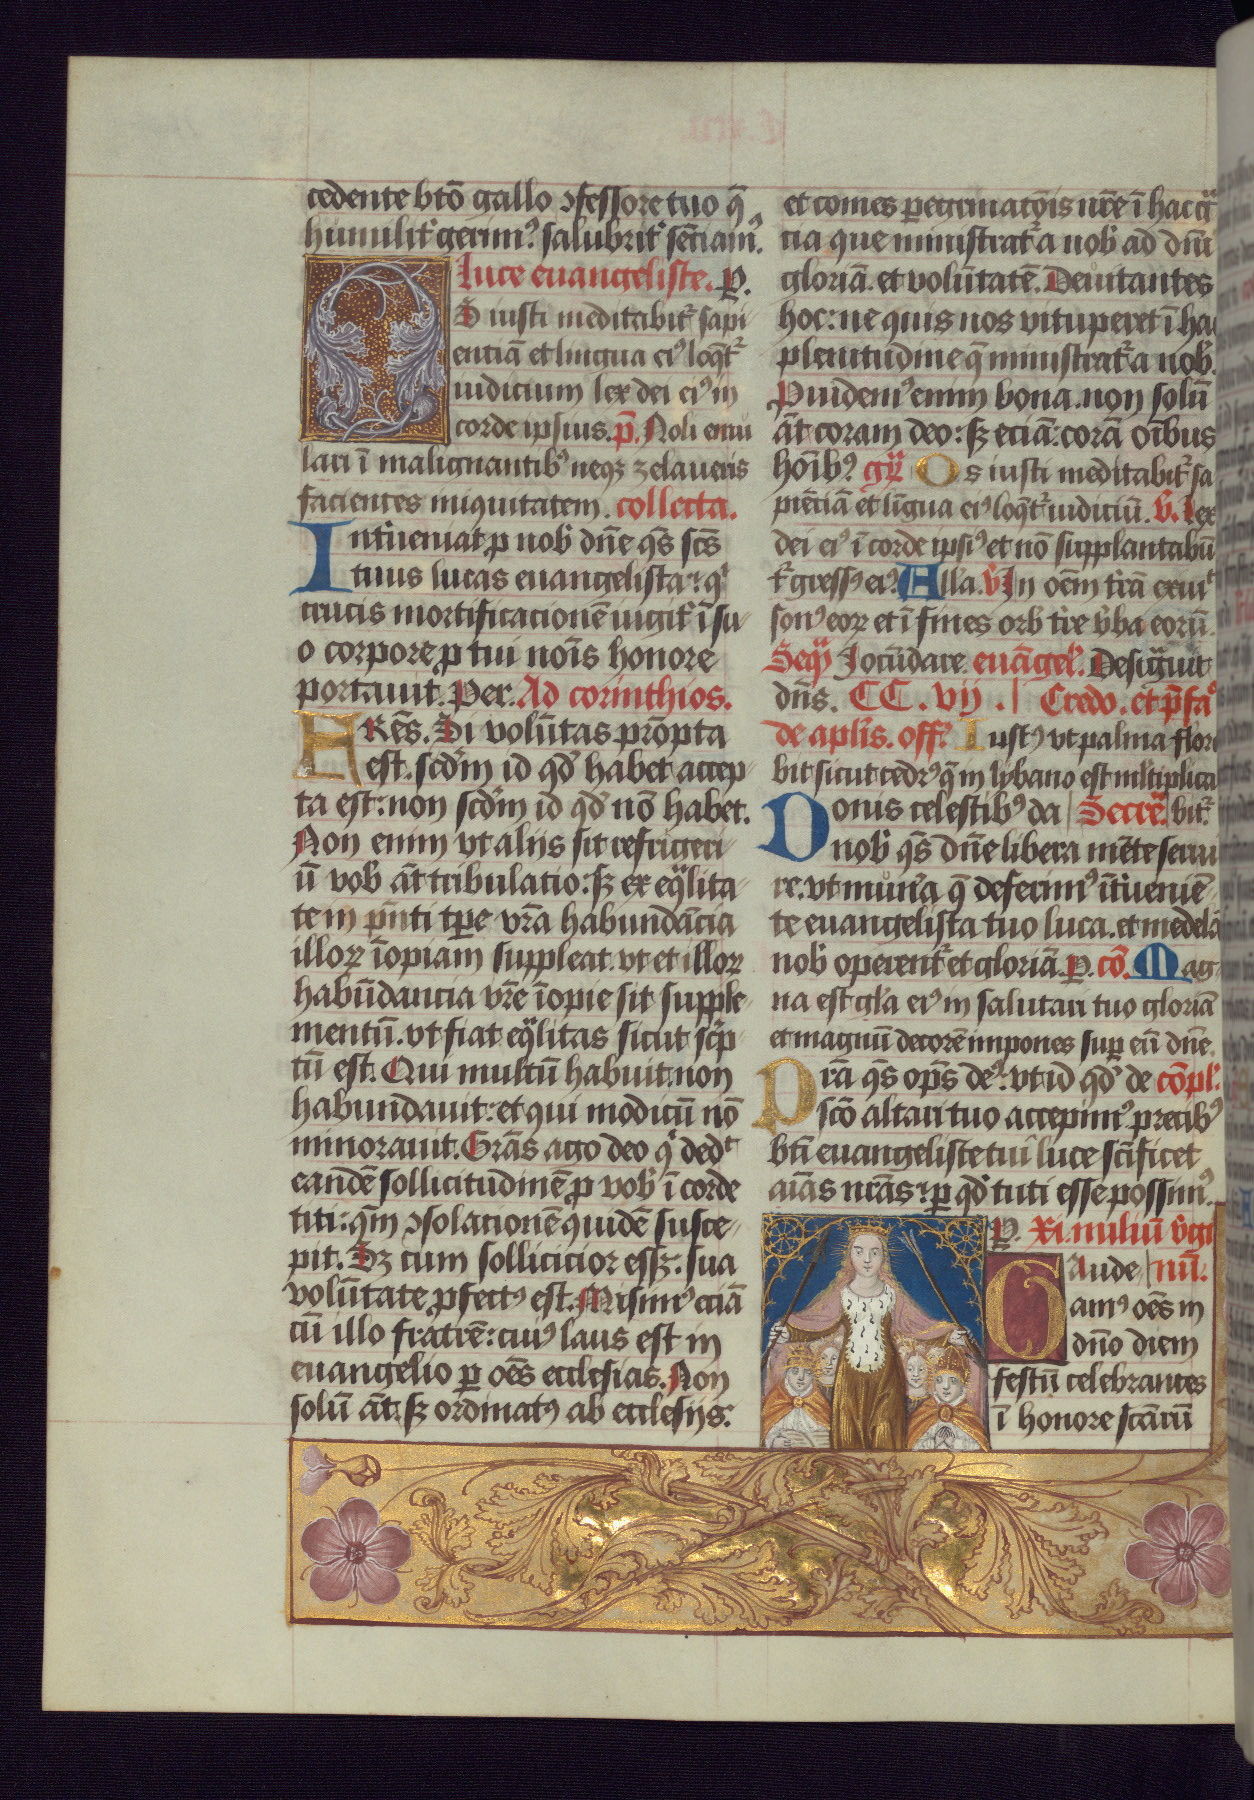 cedente bto᷒ gallo ꝯfessore tuo q̄
humilit᷑ gerimꝰ salubrit᷑ sēciamꝰ.
Luce euangeliste. P.
Os iusti meditabit᷑ sapi
entiā et lingua eiꝰ loq̄t᷑
iudicium lex dei eiꝰ in
corde ipsius. p̄. Noli emu
lari ī malignantibꝰ neqꝫ zelaueris
facientes iniquitatem. collecta.
Int᷑ueniat ꝓ nob̄ dn̄e q̄s scs̄
tuus lucas euangelista: qͥ
crucis mortificacionē iugit᷑ ī su-
o corpore ꝓ tui noīs honore
portauit. Per. Ad corinthios.
FRēs. Si volūtas prōpta
est. scd̄m id qd̄ habet accep-
ta est: non scd̄m id qd̄ nō habet.
Non enim vt alijs sit refrigeri-
ū vob̄ āt tribulatio: sꝫ ex eq̄lita-
te in pn̄ti tp̄e vr̄a habundācia
illoꝝ īopiam suppleat. vt et illoꝝ
habūdancia vr̄e īopie sit supple-
mentū. vt fiat eq̄litas sicut sc̄p-
tū est. Qui multū habuit. non
habundauit: et qui modicū nō
minorauit. Grās ago deo qͥ dedᵗ
eandē sollicitudinē ꝓ vob̄ ī corde
titi: qm̄ ꝯsolationē quidē susce-
pit. Sꝫ cum sollicicior esꝫ: sua
volūtate ꝓfectꝰ est. Misimꝰ eciā
cū illo fratrē: cuiꝰ laus est in
euangelio ꝑ oēs ecclesias. Non
solū āt: sꝫ ordinatꝰ ab ecclesijs:
et comes ꝑegrinatōis nr̄e ī hac gͣ
cia que ministrat᷑ a nob̄ ad dn̄i
gloriā. et volūtatē. Deuitantes
hoc: ne quis nos vituperet ī ha
plenitudine q̄ ministrat᷑ a nob̄.
Prouidemꝰ enim bona. non solū
āt coram deo: sꝫ eciā. corā oībus
hoībꝰ. gͣ. Os iusti meditabit᷑ sa
piēciā et līgua eiꝰ loq̄t᷑ iudiciū. v̄. Lex
dei eiꝰ ī corde ipsiꝰ et nō supplantabū
t᷑ gressꝰ eiꝰ. Alla. v̄ In oēm tr̄a exiuᵗ
sonꝰ eoꝝ et ī fines orb̄ tr̄e v̄ba eorū.
Seqͣ Jocūdare. euāgeᷝ. Desigͣuit
dn̄s. CC. vij. Credo. et p̄faᵒ
de apl̄is. off. Iustꝰ vt palma flore
bit sicut cedrꝰ q̄ in lybano est mltiplica
Donis celestibꝰ da Secre᷑. bit᷑.
nob̄ q̄s dn̄e libera mēte serui
re. vt mun̄a q̄ deferimꝰ īt᷑ueniē-
te euangelista tuo luca. et medelā
nob̄ operent᷑ et gloriā. P. cō. Mag
na est gl̄a eiꝰ in salutari tuo gloriā
et magnū decorē impones suꝑ eū dn̄e.
Prā q̄s op̄s deꝰ: vt id qd̄ de cōpl᷑.
scō altari tuo accepimꝰ precibꝰ
bt̄i euangeliste tui luce scīficet
aīas nr̄as: ꝑ qd̄ tuti esse possimꝰ.
P. Xi. miliū v̄gi
Gaude nū.
amꝰ oēs in
dn̄o diem
festū celebrantes
ī honore scārū